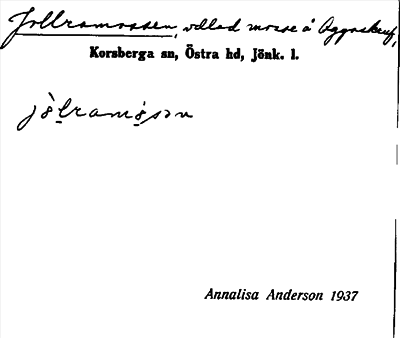 Jollramossen, odlad mosse å Aggaskruf,
Korsberga sn, Östra hd, Jönk. l.
Annalisa Anderson 1937